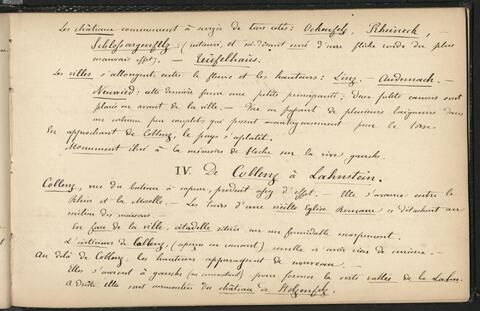 Les châteaux commencent à surgir de tous côtés : Ockenfels, Rheineck, —
Schloss argenfels (restauré, et soi-disant orné d'une flèche ronde du plus
mauvais effet). — Teufelhaus.
Les villes s'allongent entre le fleuve et les hauteurs : Linz. — Andernach. —
Neuwied, cette dernière forme une petite principauté ; deux petits canons sont
placés en avant de la ville. — Vue en passant de plusieurs baigneurs dans
un costume peu complet qui posent avantageusement pour le torse.
En approchant de Coblenz, le pays s'aplatit.
Monument élevé à la mémoire de Hoche sur la rive gauche.
IV. De Coblenz à Lahnstein.
Coblenz, vue du bateau à vapeur, produit assez d'effet. — Elle s'avance entre le
Rhin et la Moselle. — Les tours d'une vieille Eglise Romane se détachent au
milieu des maisons. —
En face de la ville, citadelle située sur un formidable escarpement.
L'intérieur de Coblenz (aperçu en courant) semble n'avoir rien de curieux. —
Au delà de Coblenz, les hauteurs apparaissent de nouveau. —
Elles s'ouvrent à gauche (en remontant) pour former la verte vallée de la Lahn.
A droite, elles sont surmontées du château de Stolzenfels.